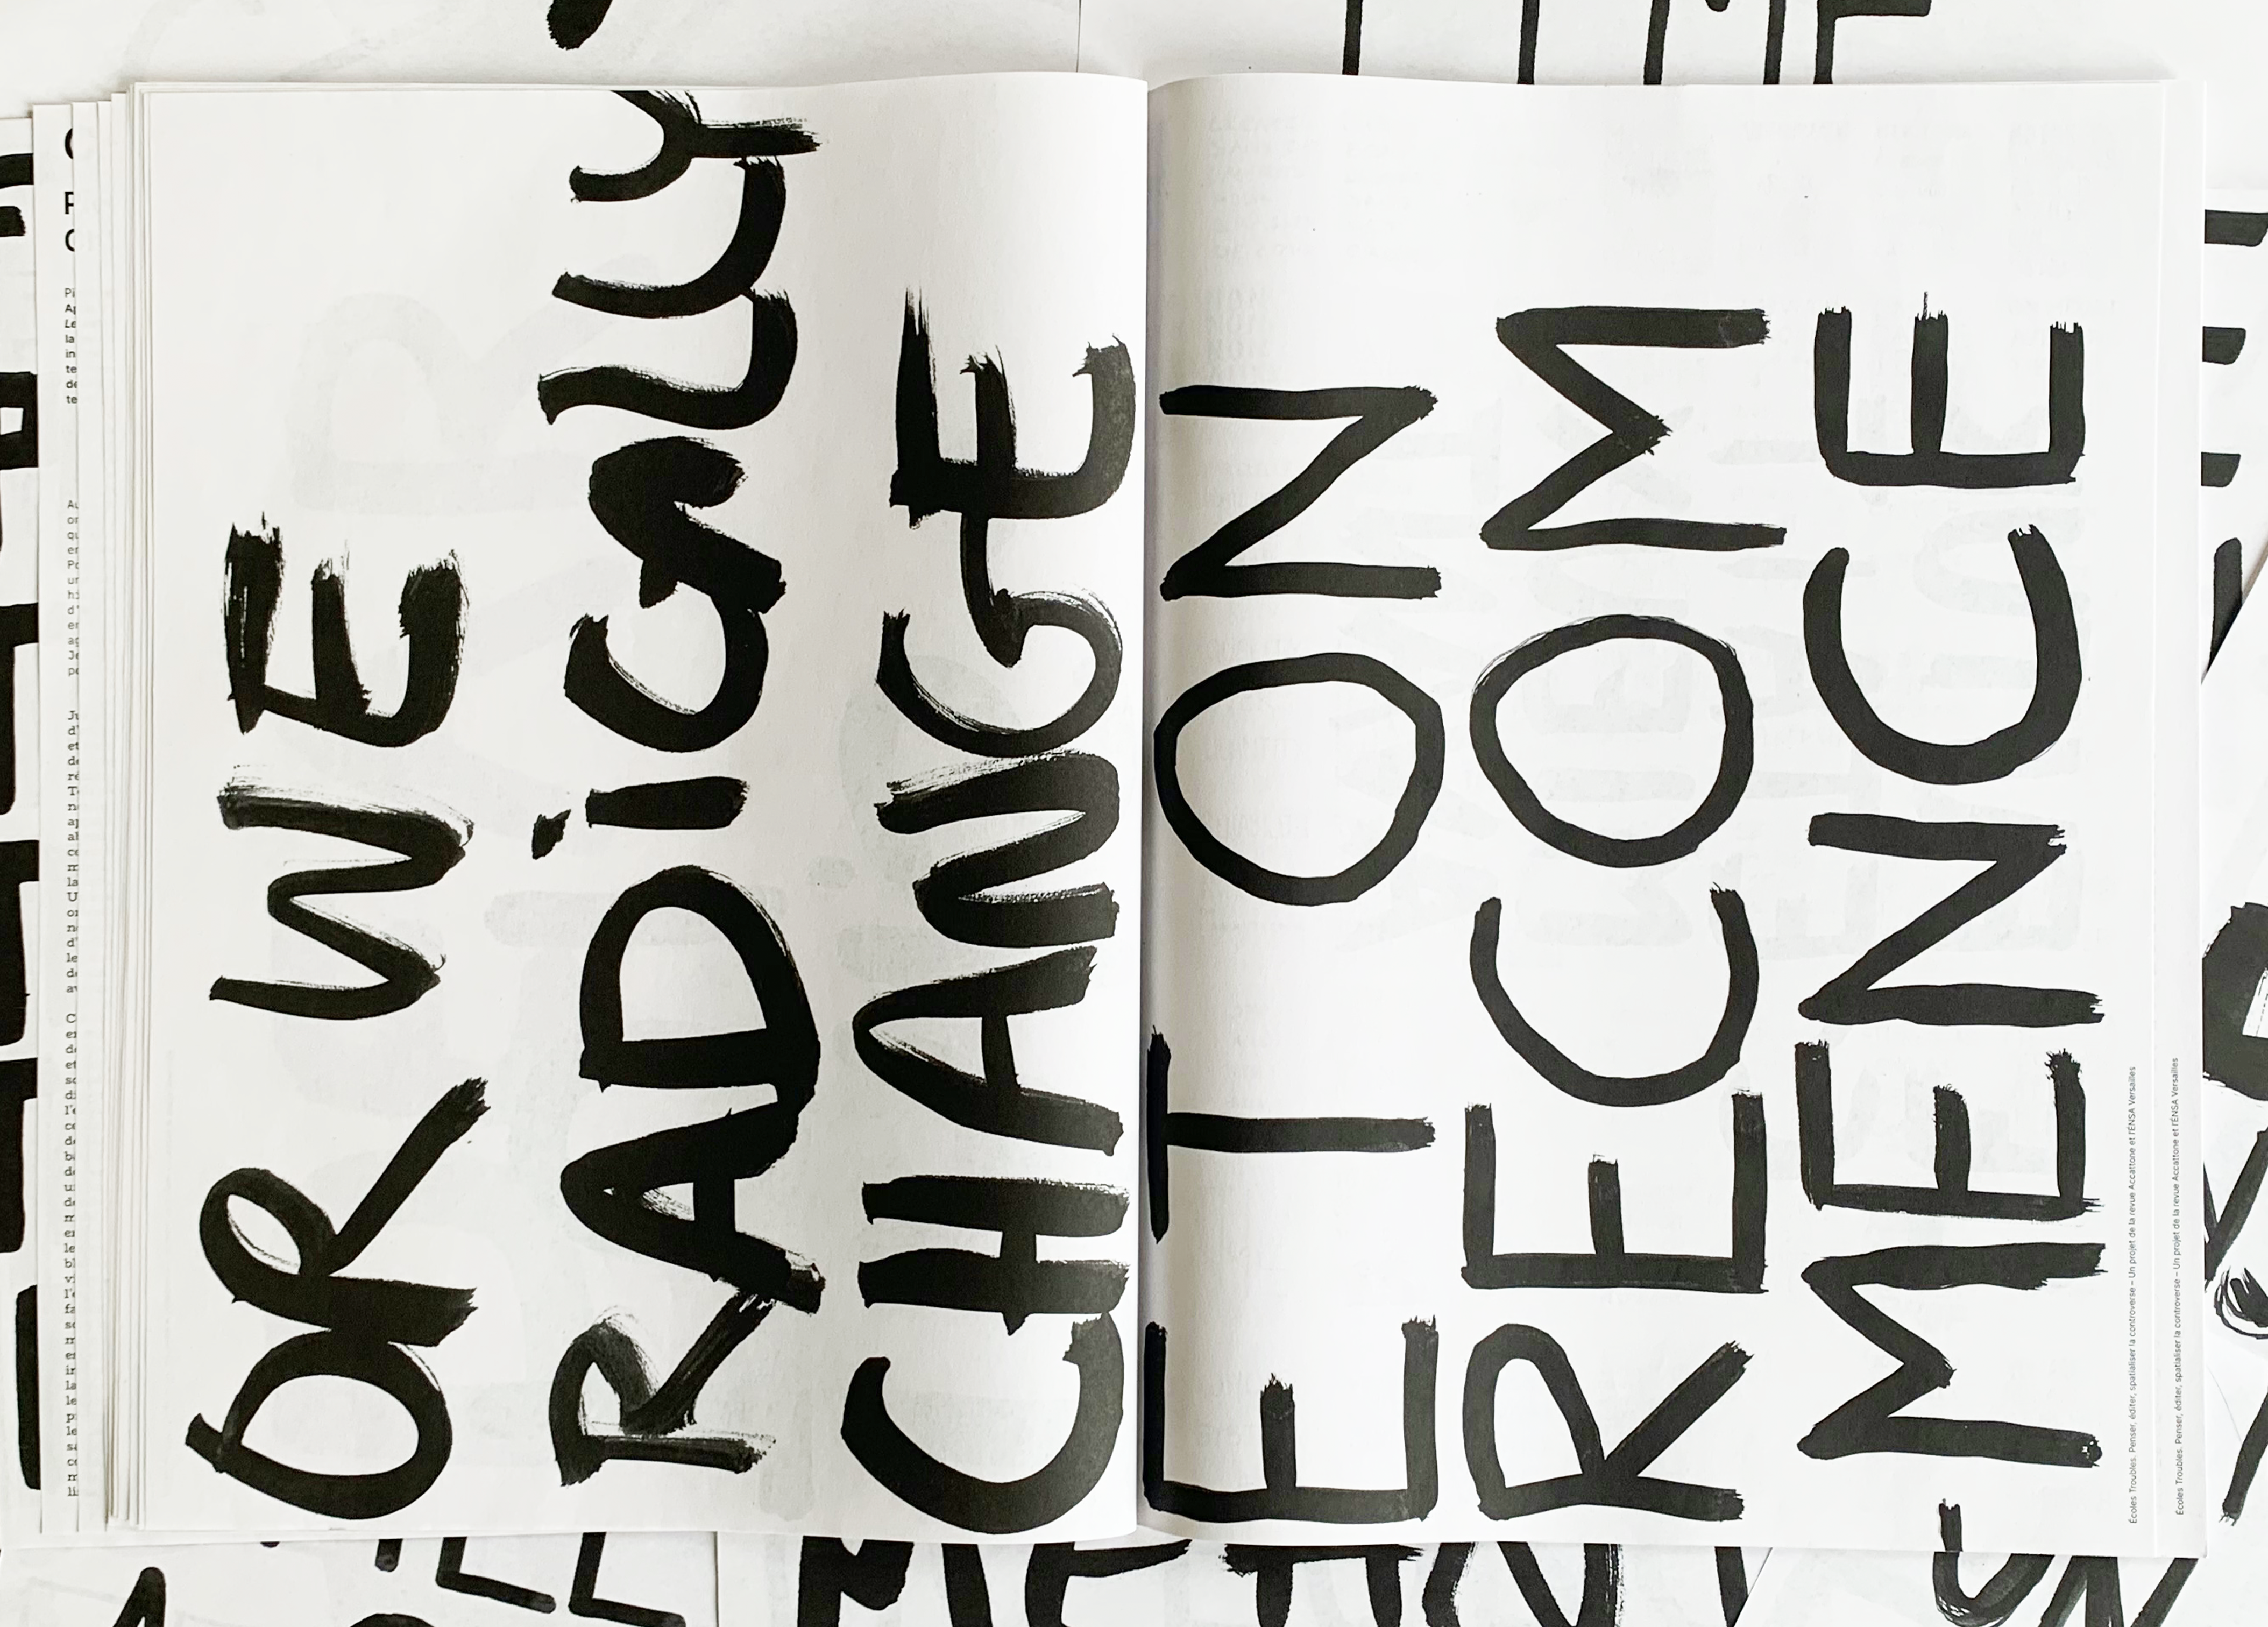 OR WE
RADiCALLY
CHANGE
ET ON
RECOM
MENCE
Écoles Troubles. Penser, éditer, spatialiser la controverse – Un projet de la revue Accattone et l'ÉNSA Versailles
Écoles Troubles. Penser, éditer, spatialiser la controverse – Un projet de la revue Accattone et l'ÉNSA Versailles